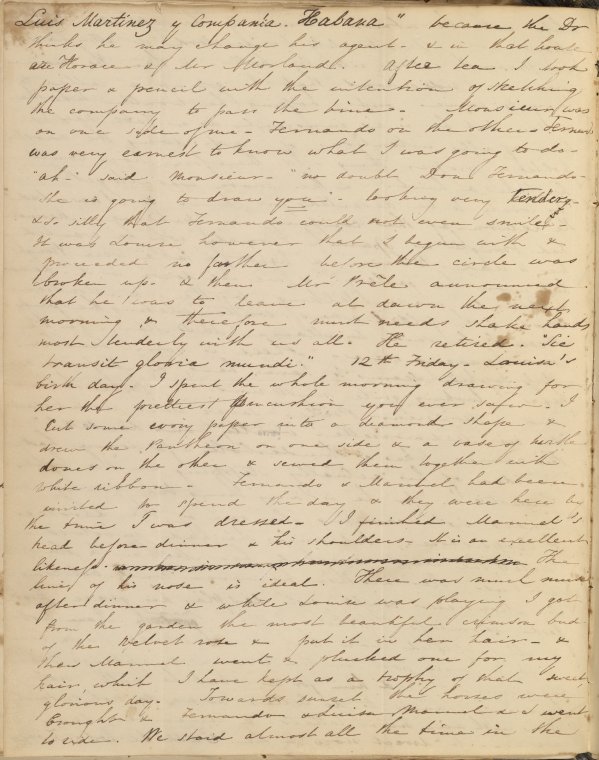 Luis Martinez y Compania. Habana" because the Dr
thinks he may change his agent - & in that house
are Horace & Mr Morland. After tea I took
paper & pencil with the intention of sketching
the company to pass the time - Monsieur was
on one side of me - Fernando on the other -
was very earnest to know what I was going to do -
"ah" said Monsieur - "no doubt Don Fernando
she is going to draw you" - looking very tender,
& so silly that Fernando could not even smile -
It was Louisa however that I began with &
proceeded no further before the circle was
broken up - & then Mr announced
that he was to leave at dawn the next
morning & therefore must needs shake hands
most tenderly with us all - He retired - "Sic
transit gloria mundi." 12th Friday - Louisa's
birth day - I spent the whole morning drawing for
her the prettiest pincushion you ever saw - I
cut some ivory paper into a diamond shape &
drew the Pantheon on one side & a vase of
doves on the other & sewed them together with
white ribbon - Fernando & Manuel had been
invited to spend the day & they were here by
the time I was dressed - I finished Manuel's
head before dinner & his shoulders - It is an excellent
likeness. The
line of his nose is ideal. There was much music
after dinner & while Louisa was playing I got
from the garden the most beautiful crimson bud
of the velvet rose & put it in her hair - &
then Manuel went & plucked one for my
hair, which I have kept as a trophy of that sweet
glorious day. Towards sunset the horses were
brought & Fernando Louisa Manuel & I went
to ride. We staid almost all the time in the